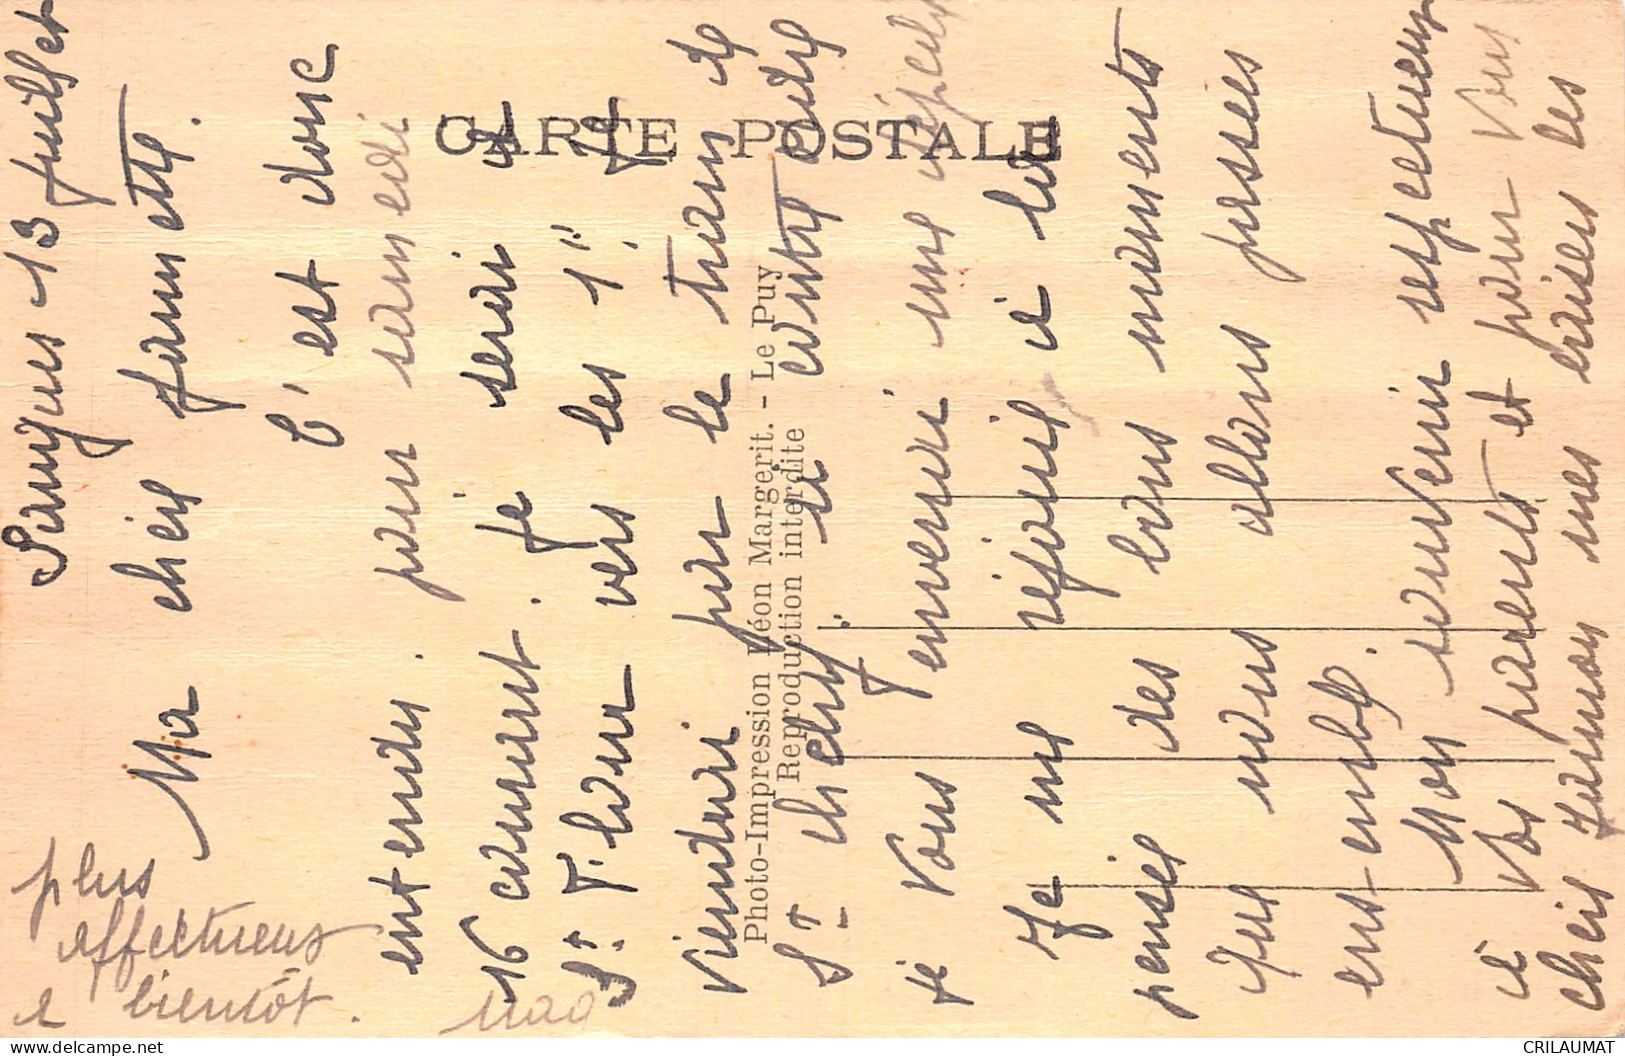 Saugues 13 juillet
Ma chère Jeannette.
C'est donc
entendu. pour samedi
16 courant. je serai à
St. Flour vers les 1h.
Je
viendrai par le train de
St. chély. si contre ordre
je vous enverrai une dépêche
Je me réjouis à la
pensée des bons moments
que nous allons passés
ensemble.
Mon souvenir respectueux
à vos parents et pour vous
chère mes baisers les
plus
affectueux
à bientôt.
CARTE POSTALE
Photo-Impression Léon Margerit. - Le Puy
Reproduction interdite
delcampe.net
CRILAUMAT